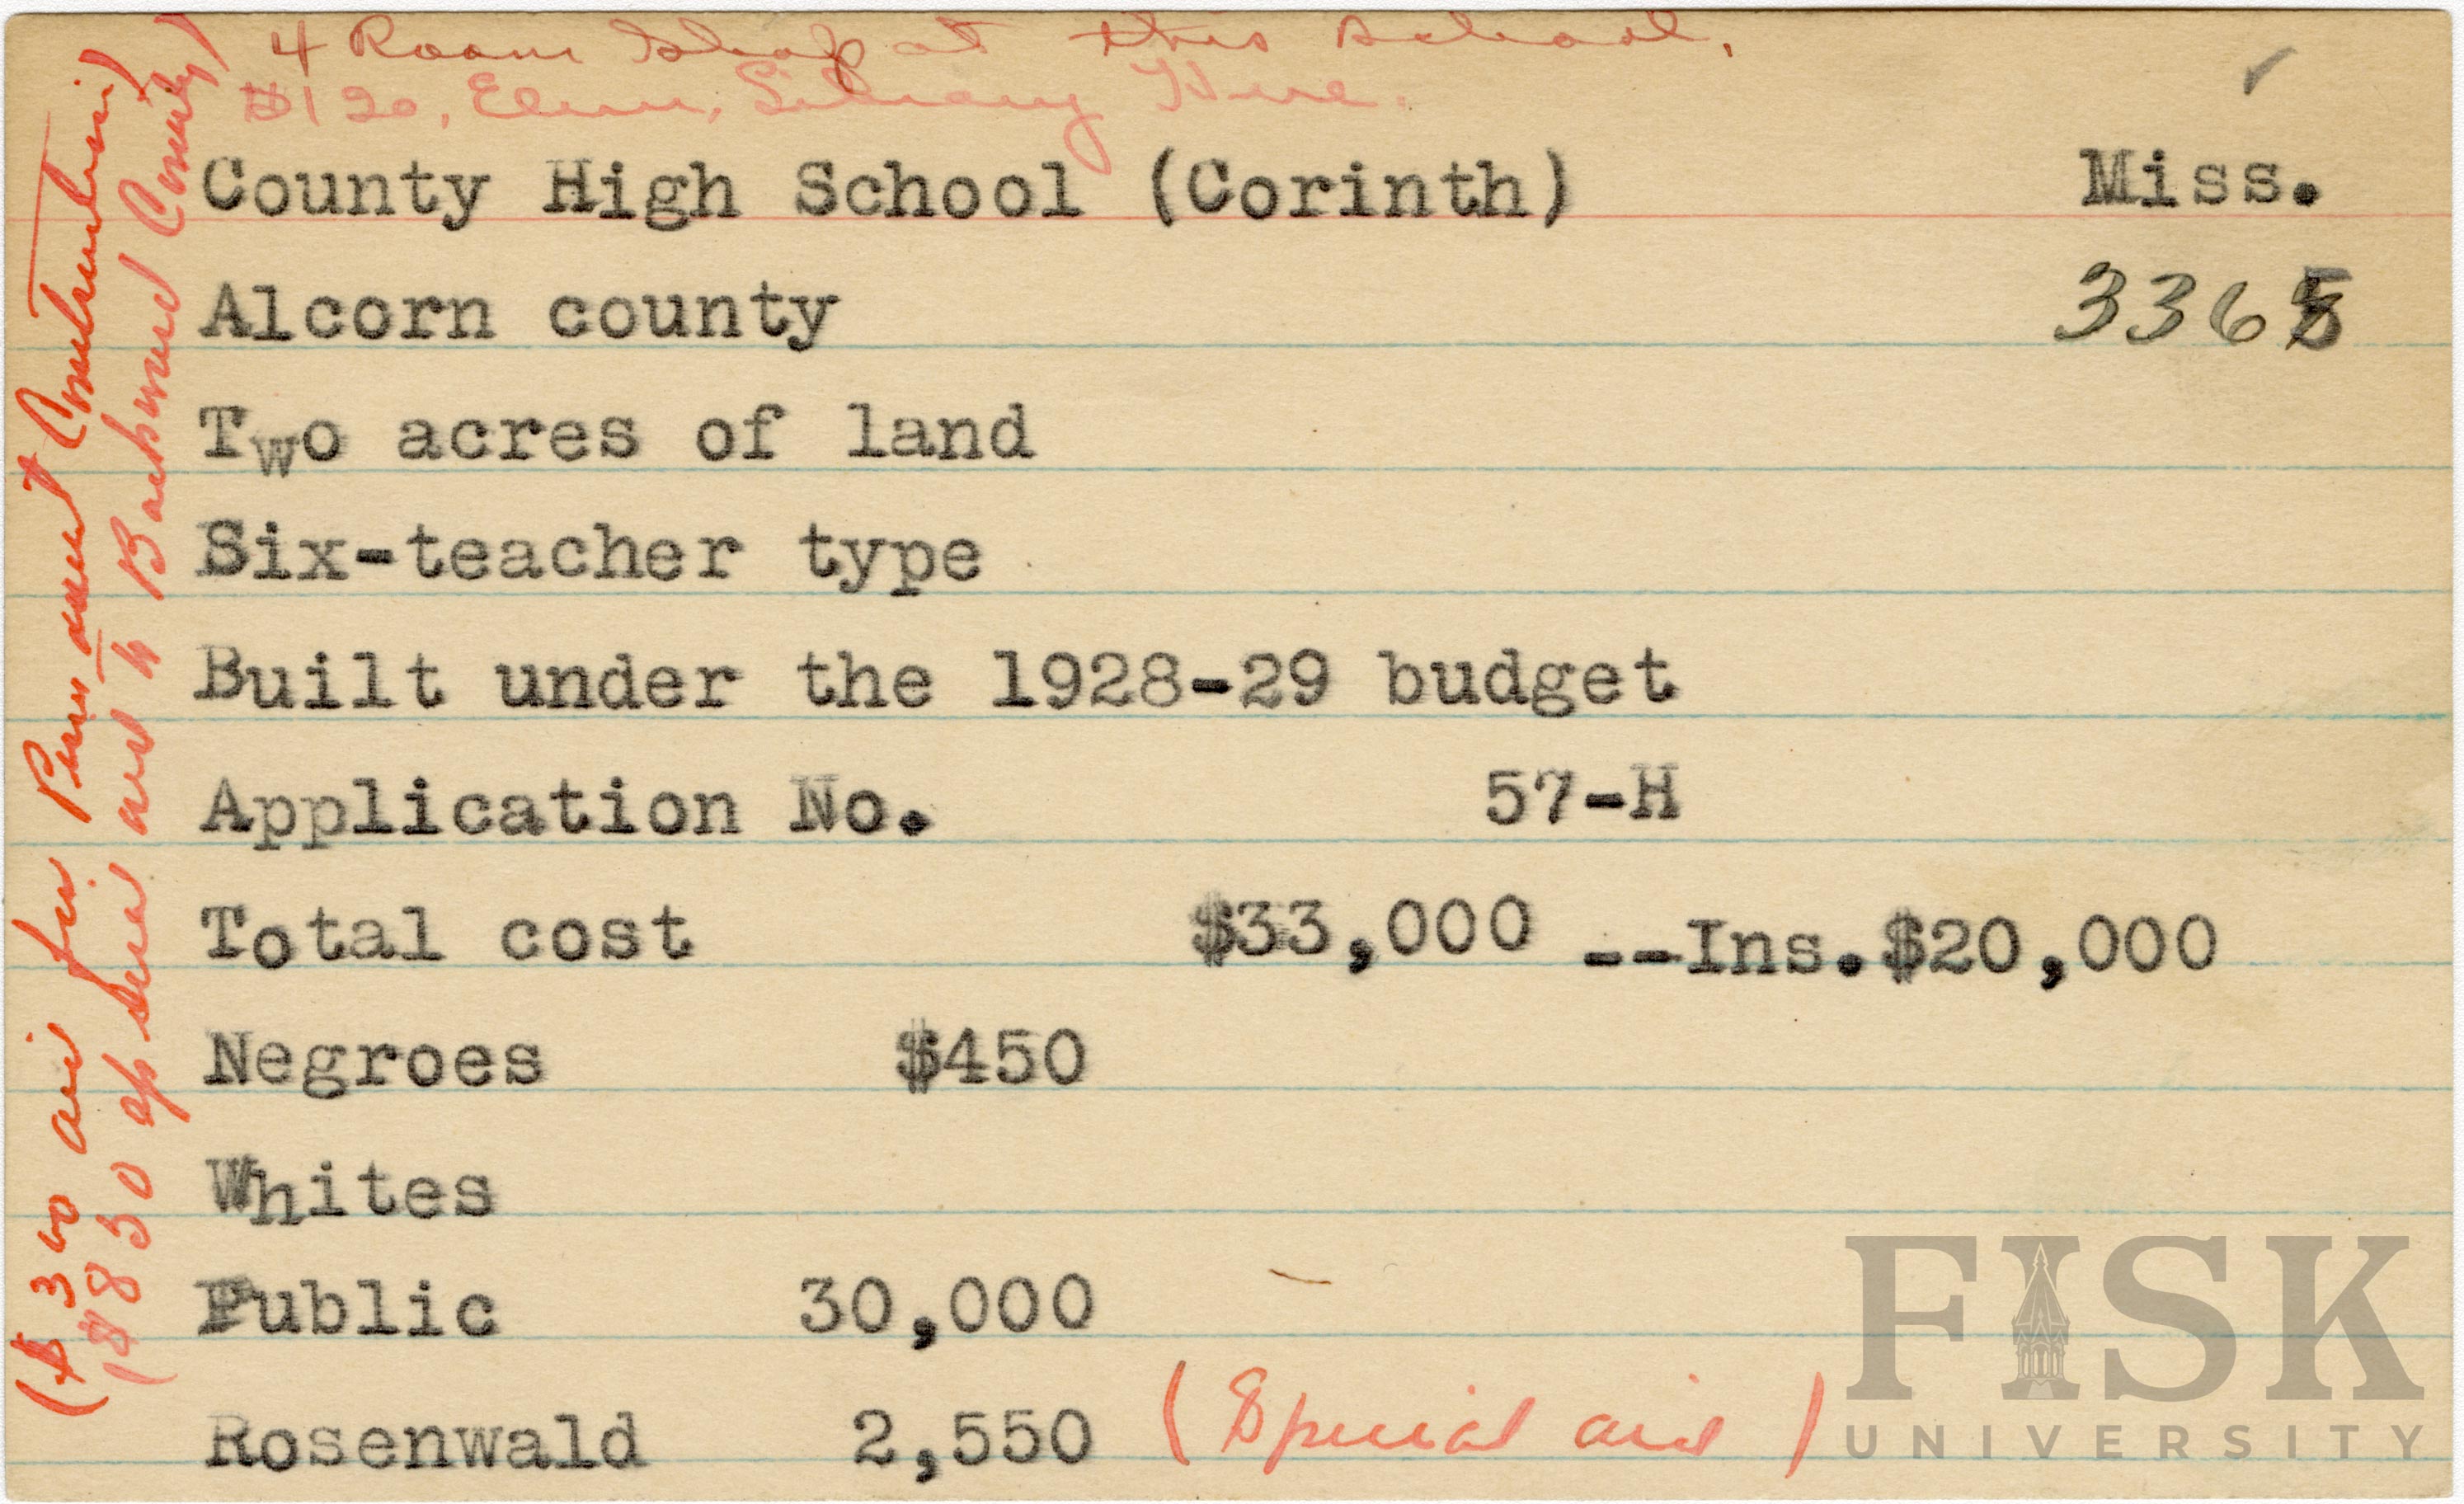 4 Room Shop at this school.
$120, Elem. Library Here.
County High School (Corinth) Miss.
Alcorn county 3365
Two acres of land
Six-teacher type
Built under the 1928-29 budget
Application No. 57-H
Total cost $33,000 --Ins.$20,000
Negroes $450
Whites
Public 30,000
Rosenwald 2,550 (Special aid)
($300 aid for Permanent Construction)
(1850 of Special aid & Backward County)
FISK
UNIVERSITY